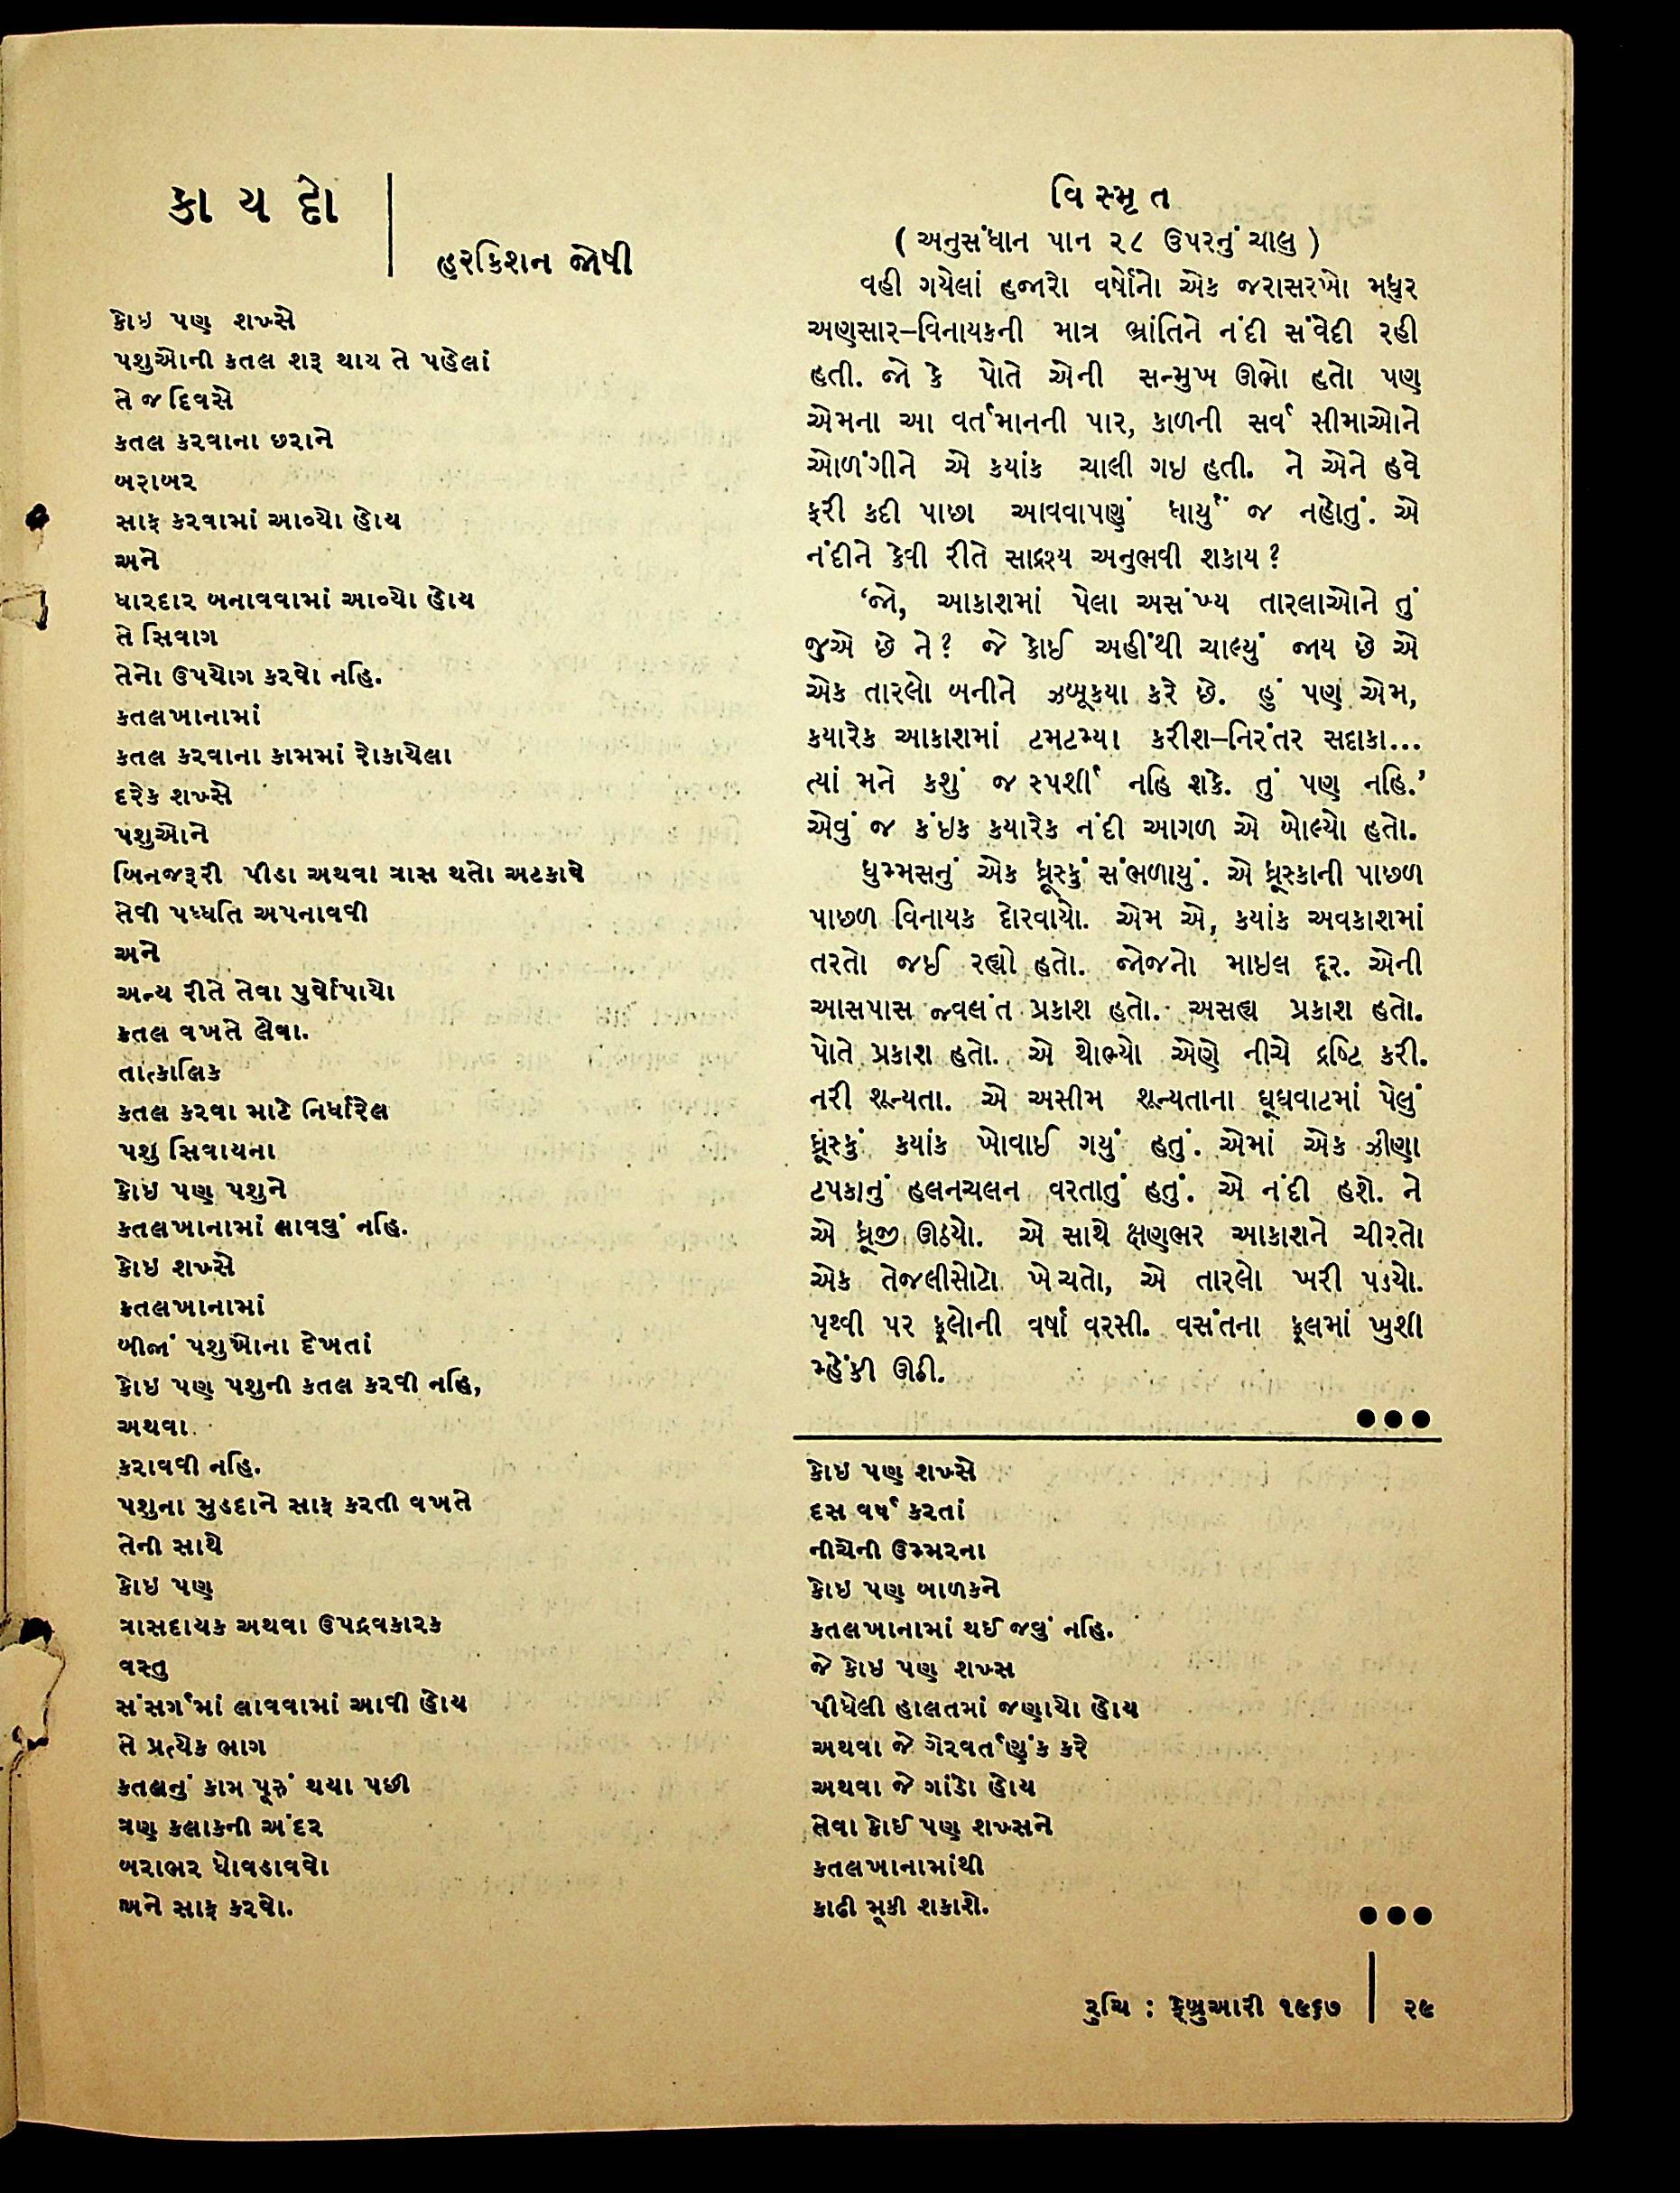 કાયદો
હરકિશન જોષી
કોઇ પણ શખ્સે
પશુઓની કતલ શરૂ થાય તે પહેલાં
તે જ દિવસે
કતલ કરવાના છરાને
બરાબર
સાફ કરવામાં આવ્યો હોય
અને
ધારદાર બનાવવામાં આવ્યો હોય
તે સિવાગ
તેનો ઉપયોગ કરવો નહિ.
કતલખાનામાં
કતલ કરવાના કામમાં રોકાયેલા
દરેક શખ્સે
પશુઓને
બિનજરૂરી પીડા અથવા ત્રાસ થતો અટકાવે
તેવી પધ્ધતિ અપનાવવી
અને
અન્ય રીતે તેવા પુર્વોપાયો
કતલ વખતે લેવા.
તાત્કાલિક
કતલ કરવા માટે નિર્ધારેલ
પશુ સિવાયના
કોઇ પણ પશુને
કતલખાનામાં લાવવું નહિ.
કોઇ શખ્સે
કતલખાનામાં
બીજાં પશુઓના દેખતાં
કોઇ પણ પશુની કતલ કરવી નહિ,
અથવા
કરાવવી નહિ.
પશુના મુડદાને સાફ કરતી વખતે
તેની સાથે
કોઇ પણ
ત્રાસદાયક અથવા ઉપદ્રવકારક
વસ્તુ
સંસર્ગમાં લાવવામાં આવી હોય
તે પ્રત્યેક ભાગ
કતલનું કામ પૂરું થયા પછી
ત્રણ કલાકની અંદર
બરાભર ધોવડાવવો
અને સાફ કરવો.
વિસ્મૃત
( અનુસંધાન પાન ૨૮ ઉપરનું ચાલુ )
વહી ગયેલાં હજારો વર્ષોનો એક જરાસરખો મધુર
અણસાર–વિનાયકની માત્ર ભ્રાંતિને નંદી સંવેદી રહી
હતી. જો કે પોતે એની સન્મુખ ઊભો હતો પણ
એમના આ વર્તમાનની પાર, કાળની સર્વ સીમાઓને
ઓળંગીને એ કયાંક ચાલી ગઇ હતી. ને એને હવે
ફરી કદી પાછા આવવાપણું ધાર્યું જ નહોતું. એ
નંદીને કેવી રીતે સાદ્રશ્ય અનુભવી શકાય?
‘જો, આકાશમાં પેલા અસંખ્ય તારલાઓને તું
જુએ છે ને? જે કોઈ અહીંથી ચાલ્યું જાય છે એ
એક તારલો બનીને ઝબૂકયા કરે છે. હું પણ એમ,
કયારેક આકાશમાં ટમટમ્યા કરીશ–નિરંતર સદાકા...
ત્યાં મને કશું જ સ્પર્શી નહિ શકે. તું પણ નહિ.’
એવું જ કંઇક કયારેક નંદી આગળ એ બોલ્યો હતો.
ધુમ્મસનું એક ધ્રૂસ્કું સંભળાયું. એ ધ્રૂસ્કાની પાછળ
પાછળ વિનાયક દોરવાયો. એમ એ, કયાંક અવકાશમાં
તરતો જઈ રહ્યો હતો. જોજનો માઇલ દૂર. એની
આસપાસ જ્વલંત પ્રકાશ હતો. અસહ્ય પ્રકાશ હતો.
પોતે પ્રકાશ હતો. એ થોભ્યો એણે નીચે દ્રષ્ટિ કરી.
નરી શૂન્યતા. એ અસીમ શૂન્યતાના ઘૂઘવાટમાં પેલું
ધ્રૂસ્કું કયાંક ખોવાઈ ગયું હતું. એમાં એક ઝીણા
ટપકાનું હલનચલન વરતાતું હતું. એ નંદી હશે. ને
એ ધ્રૂજી ઊઠયો. એ સાથે ક્ષણભર આકાશને ચીરતો
એક તેજલીસોટો ખેચતો, એ તારલો ખરી પડયો.
પૃથ્વી પર ફૂલોની વર્ષા વરસી. વસંતના ફૂલમાં ખુશી
મ્હેંકી ઊઠી.
●●●
કોઇ પણ શખ્સે
દસ વર્ષ કરતાં
નીચેની ઉમ્મરના
કોઇ પણ બાળકને
કતલખાનામાં થઈ જવું નહિ.
જે કોઇ પણ શખ્સ
પીધેલી હાલતમાં જણાયો હોય
અથવા જે ગેરવર્તણુંક કરે
અથવા જે ગાંડો હોય
તેવા કોઈ પણ શખ્સને
કતલખાનામાંથી
કાઢી મૂકી શકાશે.
●●●
રુચિ : ફેબ્રુઆરી ૧૯૬૭ | ૨૯